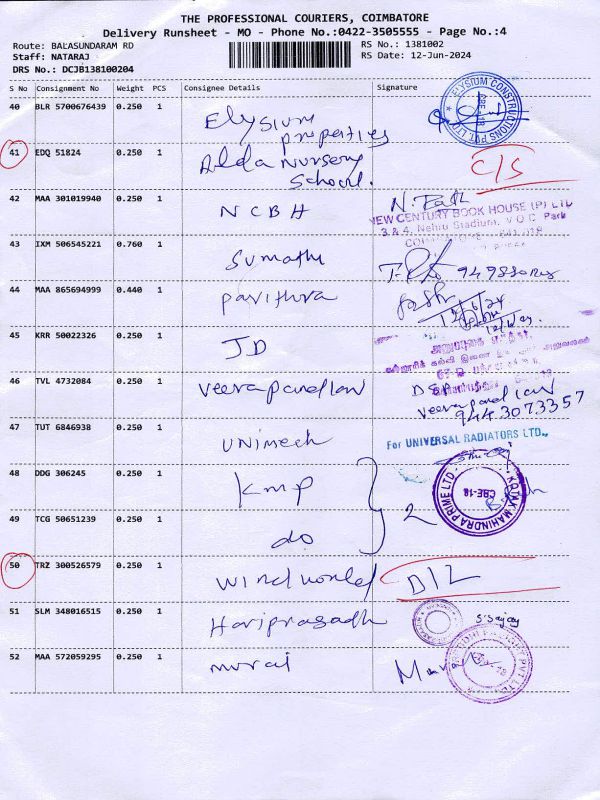 THE PROFESSIONAL COURIERS, COIMBATORE
Delivery Runsheet - MO - Phone No.:0422-3505555 - Page No.:4
Route: BALASUNDARAM RD
RS No.: 1381002
Staff: NATARAJ
RS Date: 12-Jun-2024
DRS No.: DCJB138100204
S No Consignment No Weight PCS Consignee Details Signature
40 BLR 5700676439 0.250 1 Elysium properties
ELYSIUM CONSTRUCTIONS PVT LTD CBE-18
41 EDQ 51824 0.250 1 Alda Nursery School. C/S
42 MAA 301019940 0.250 1 NCBH
NEW CENTURY BOOK HOUSE (P) LTD
3 & 4, Nehru Stadium, V O C. Park
43 IXM 506545221 0.760 1 Sumathi
44 MAA 865694999 0.440 1 pavithra
12/6/24
45 KRR 50022326 0.250 1 JD
46 TVL 4732084 0.250 1 Veerapandian
9443073357
47 TUT 6846938 0.250 1 UNimech For UNIVERSAL RADIATORS LTD.,
48 DDG 306245 0.250 1 kmp
2 KOTAK MAHINDRA PRIME LTD CBE-18
49 TCG 50651239 0.250 1 do
50 TRZ 300526579 0.250 1 Windworld D/L
51 SLM 348016515 0.250 1 Hariprasadh
52 MAA 572059295 0.250 1 murai